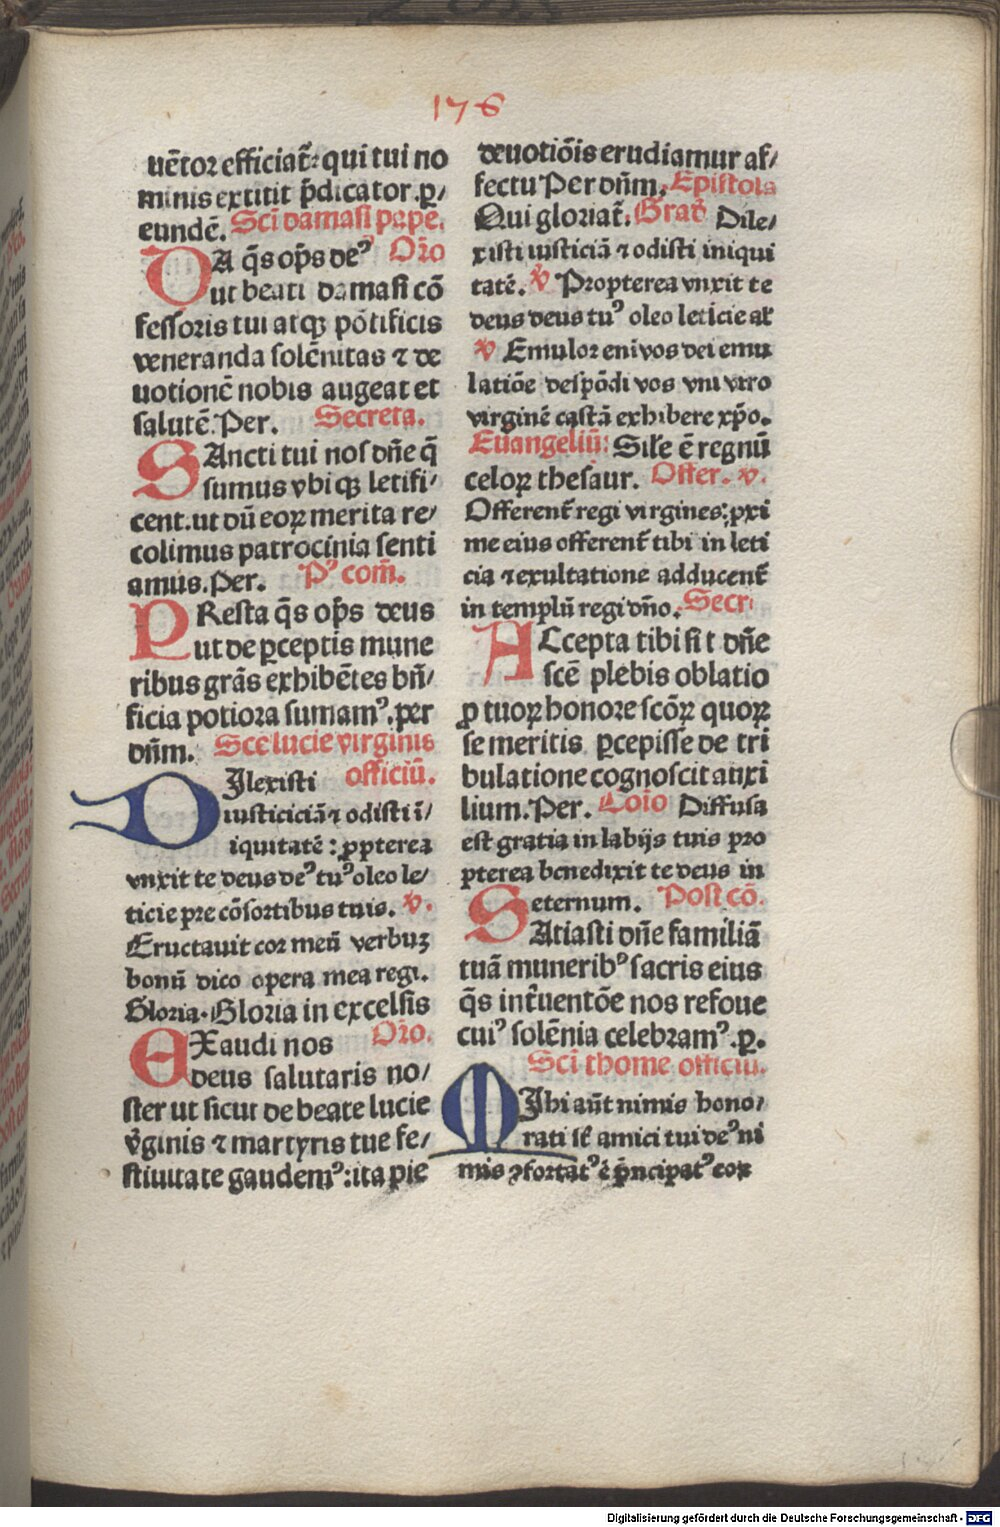 176
uētor efficiat̄: qui tui no
minis extitit p̄dicator.ꝑ/
eundē. Sci damasi pape.
DA q̄s op̄s deꝰ Or̄o
ut beati damasi cō
fessoris tui atqꝫ pōtificis
veneranda solēnitas ⁊ de
uotionē nobis augeat et
salutē. Per. Secreta.
SAncti tui nos dn̄e q̄
sumus vbiqꝫ letifi/
cent. ut dū eoꝝ merita re/
colimus patrocinia senti
amus. Per. Pꝰ com̄.
PResta q̄s op̄s deus
ut de ꝑceptis mune
ribus grās exhibētes bn̄/
ficia potiora sumamꝰ. per
dn̄m. Sce lucie virginis
DIlexisti officiū.
iusticiciā ⁊ odisti ī/
iquitatē : ꝓpterea
vnxit te deus deꝰ tuꝰ oleo le/
ticie pre cōsortibus tuis. v̄.
Eructauit cor meū verbuꝫ
bonū dico opera mea regi.
Gloria. Gloria in excelsis
EXaudi nos Or̄o.
deus salutaris no/
ster ut sicut de beate lucie
v̄ginis ⁊ martyris tue fe/
stiuitate gaudemꝰ: ita pie
deuotiōis erudiamur af/
fectu Per dn̄m. Epistola
Qui gloriat̄. Grad̄ Dile/
xisti iusticiā ⁊ odisti iniqui
tatē. v̄ Propterea vnxit te
deus deus tuꝰ oleo leticie al̄
v̄ Emulor eni vos dei emu
latiōe despōdi vos vni viro
virginē castā exhibere xp̄o.
Euangeliū: Sil̄e ē regnū
celoꝝ thesaur. Offer. v̄.
Offerent̄ regi virgines: ꝓxi
me eius offerent̄ tibi in leti
cia ⁊ exultatione adducent̄
in templū regi dn̄o. Secr̄
ACcepta tibi sit dn̄e
scē plebis oblatio
ꝓ tuoꝝ honore scōꝝ quoꝝ
se meritis ꝑcepisse de tri
bulatione cognoscit auxi
lium. Per. Cōio Diffusa
est gratia in labijs tuis pro
pterea benedixit te deus in
eternum. Post cō.
SAtiasti dn̄e familiā
tuā muneribꝰ sacris eius
q̄s int̄uentōe nos refoue
cuiꝰ solēnia celebramꝰ. ꝑ.
Sci thome officiū.
MIhi aūt nimis hono/
rati st̄ amici tui deꝰ ni
mis ꝯfortatꝰ ē p̄ncipatꝰ eoꝝ
Digitalisierung gefördert durch die Deutsche Forschungsgemeinschaft - DFG